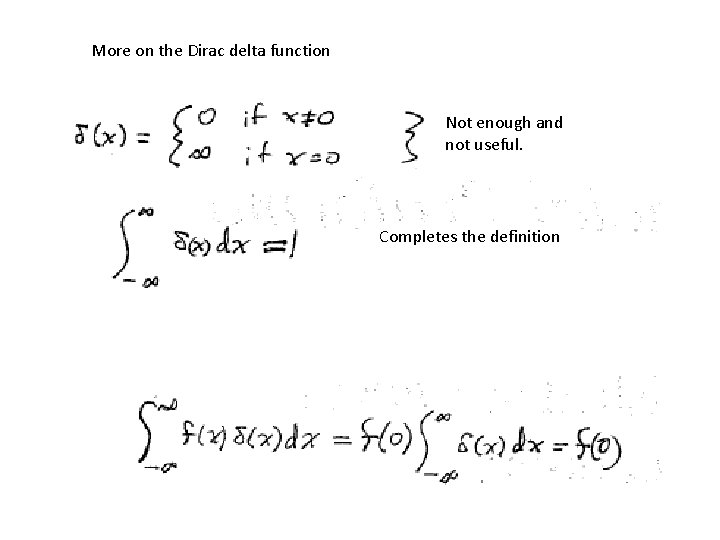 More on the Dirac delta function
δ(x) = { 0 if x≠0
∞ if x=0 }
Not enough and
not useful.
∫_{-∞}^{∞} δ(x) dx = 1
Completes the definition
∫_{-∞}^{∞} f(x) δ(x) dx = f(0) ∫_{-∞}^{∞} δ(x) dx = f(0)